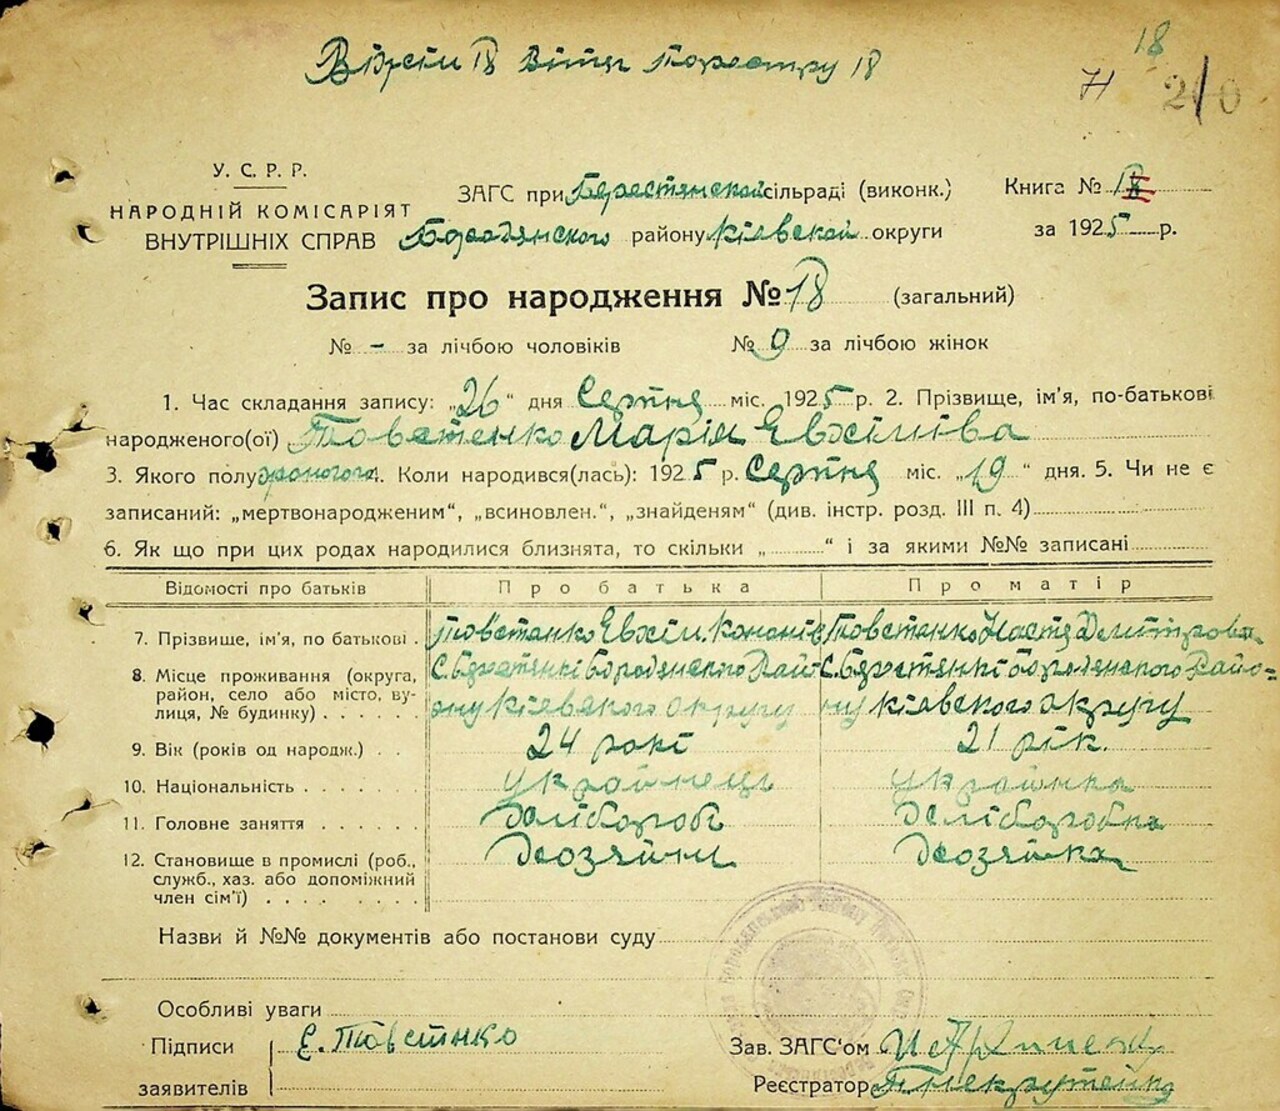 18
18
Н 210
У. С. Р. Р.
НАРОДНІЙ КОМІСАРІЯТ
ВНУТРІШНІХ СПРАВ
ЗАГС при Берестянской сільраді (виконк.) Книга №
Бородянского району Кіевской округи за 1925 р.
Запис про народження № 18 (загальний)
№ - за лічбою чоловіків № 9 за лічбою жінок
1. Час складання запису: „26" дня Серпня міс. 1925 р. 2. Прізвище, ім'я, по-батькові
народженого(ої) Товстенко Марія Евхимівна
3. Якого полу 4. Коли народився(лась): 1925 р. Серпня міс. „19" дня. 5. Чи не є
записаний: „мертвонародженим", „всиновлен.", „знайденям" (див. інстр. розд. III п. 4)
6. Як що при цих родах народилися близнята, то скільки „ " і за якими №№ записані
Відомості про батьків Про батька Про матір
7. Прізвище, ім'я, по батькові . Товстенко Евхим Товстенко Настя Дмитровн
8. Місце проживання (округа, С. Берестянкі Бородянского Рай- С. Берестянкі Бородянского Райо-
район, село або місто, ву-
лиця, № будинку) . . . . . . ону Кіевского округу ну Кіевского округу
9. Вік (років од народж.) . . 24 рокі 21 рік.
10. Національність . . . . . . . Українець Українка
11. Головне заняття . . . . . . Хлібороб Хліборобка
12. Становище в промислі (роб., Хозяйин Хозяйка
служб., хаз. або допоміжний
член сім'ї) . . . . . . . .
Назви й №№ документів або постанови суду
Особливі уваги
Підписи Е. Товстенко Зав. ЗАГС'ом
заявителів Реєстратор